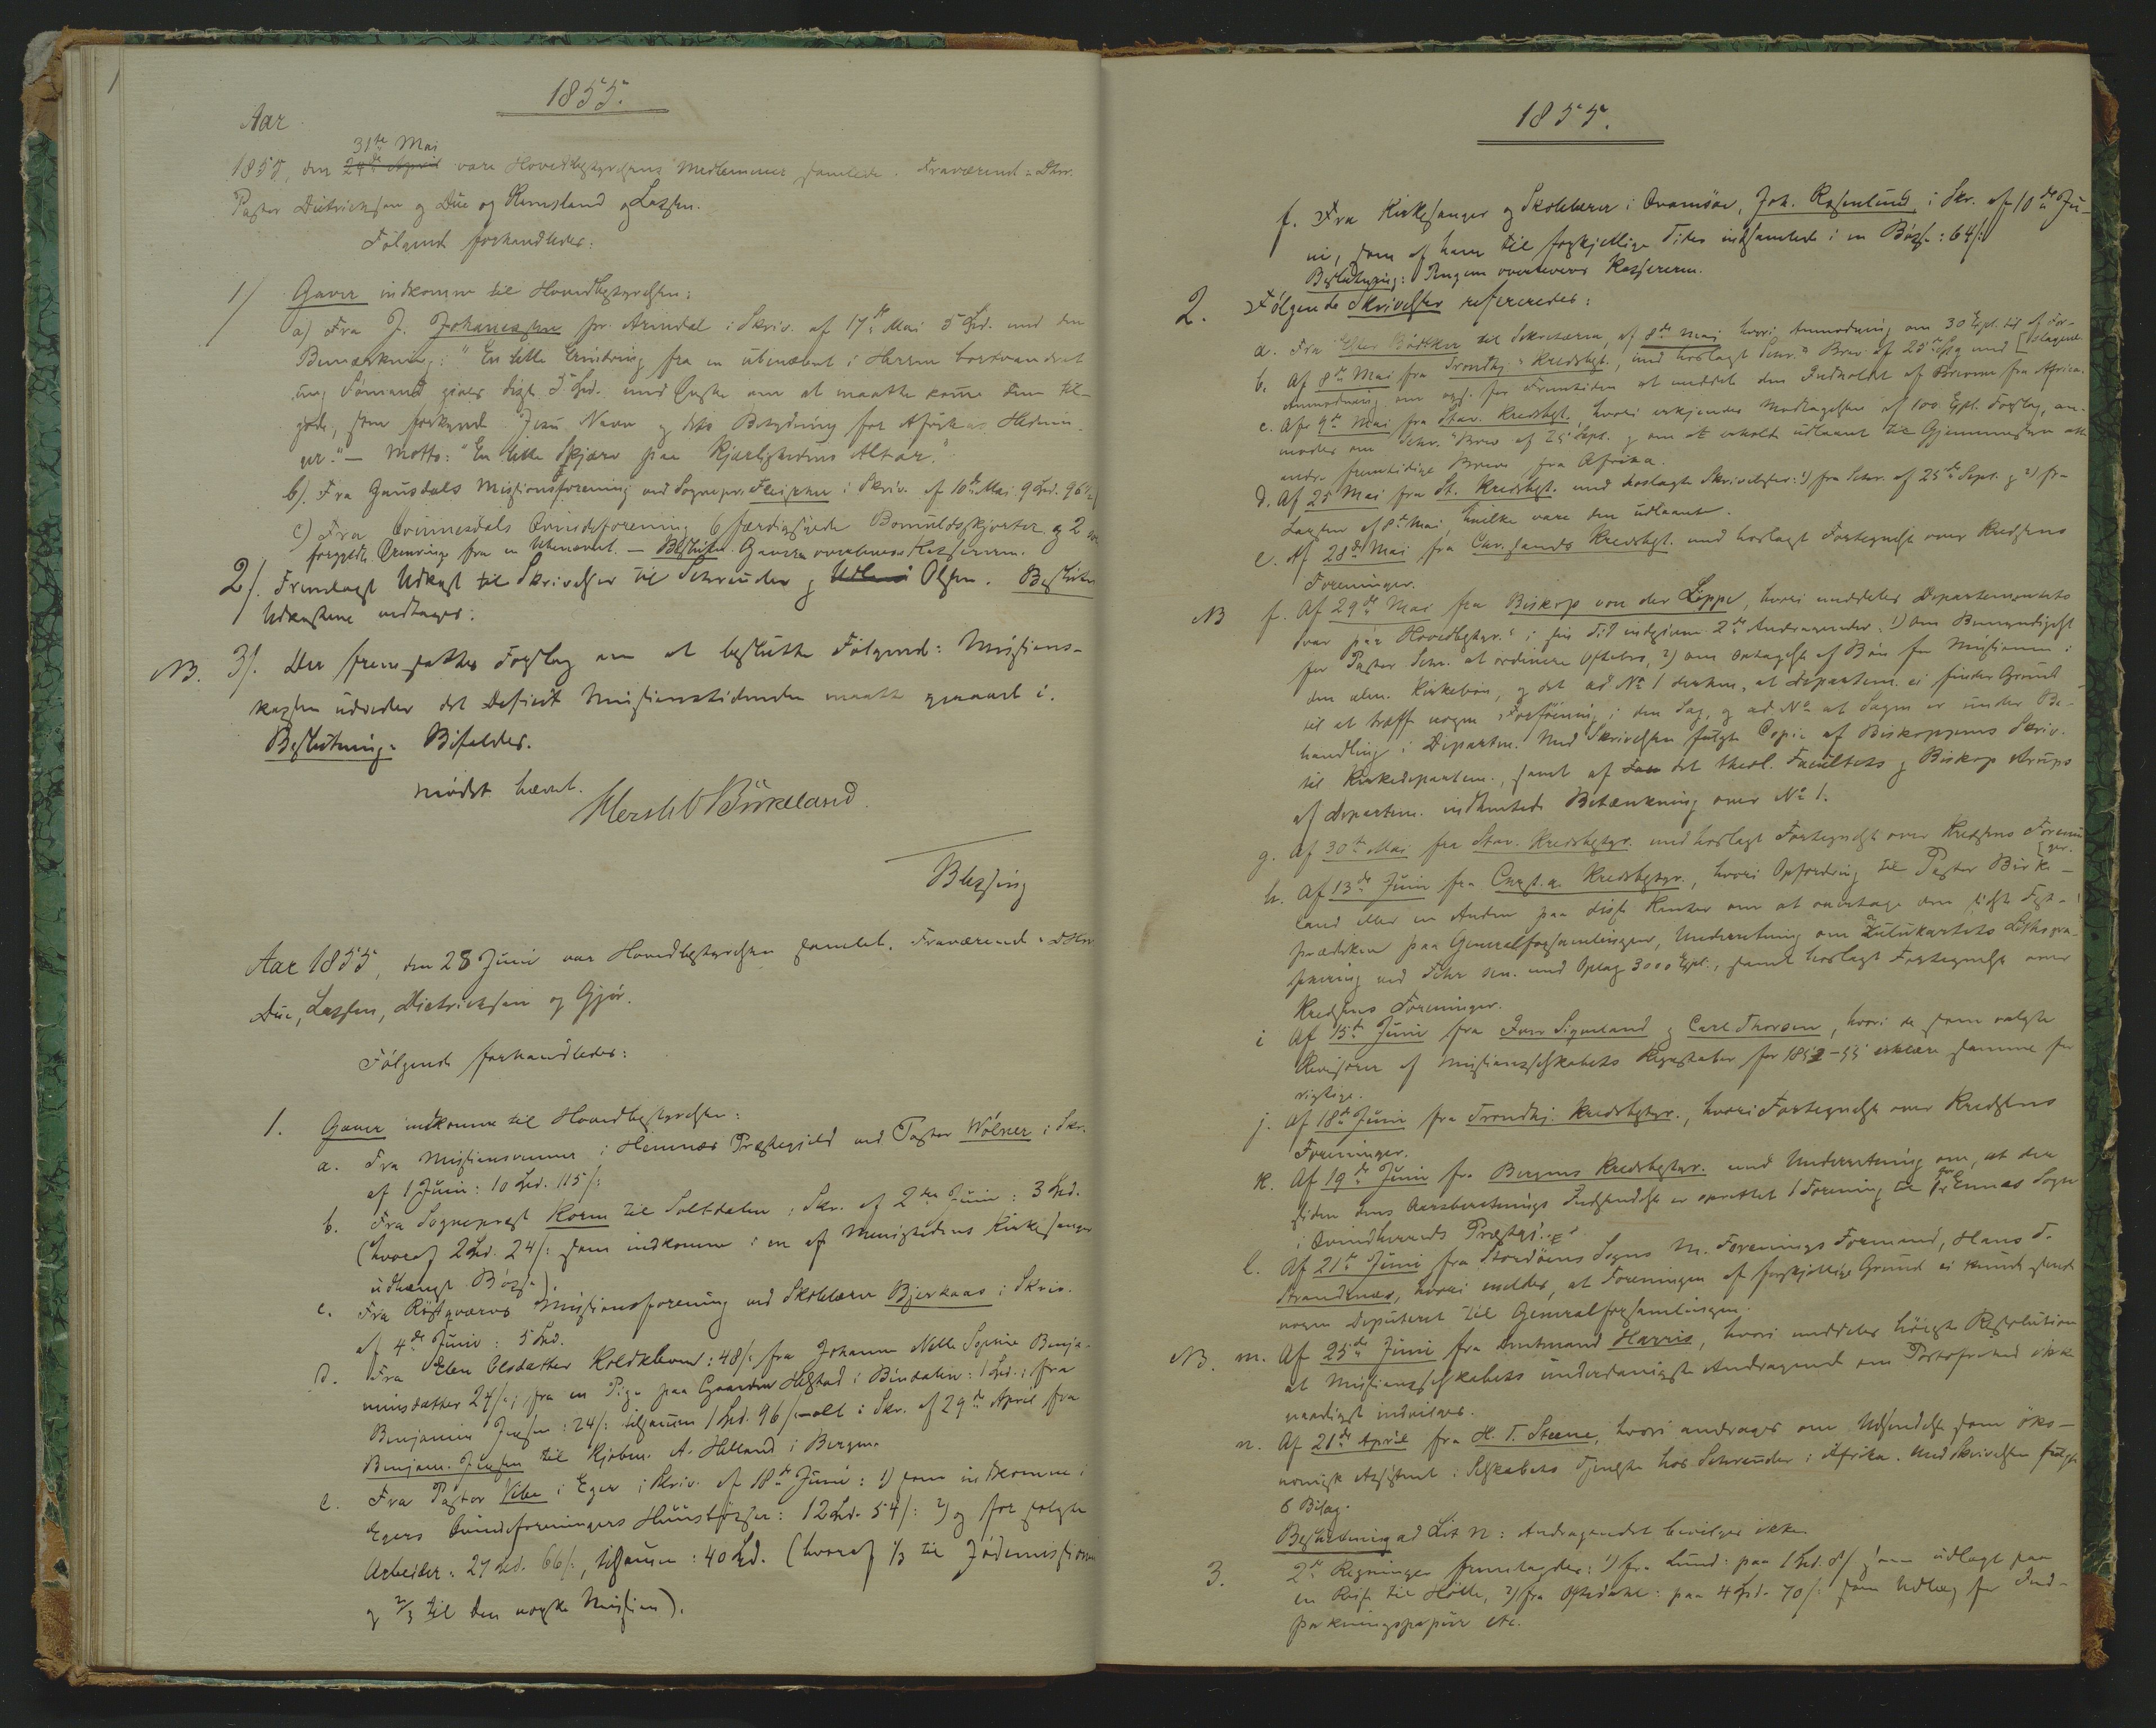 1855.
Aar
31te Mai
1855, den 24de April vare Hovedbestyrelsens Medlemmer samlede. Fraværend: DHrr.
Pastor Dietrichsen og Due og Remsland og Lassen.
Følgende forhandledes:
1/ Gaver indkomne til Hovedbestyrelsen:
a) Fra J. Johannessen pr. Arendal i Skriv. af 17de Mai 5 Spd. med den
Bemærkning: "En liten Erindring fra en ubenævnt i Herren bortvandret
ung Sømand gives disse 5 Spd. med Ønske om at maatte komme dem til-
gode, som forkynde Jesu Navn og dets Betydning for Afrikas Hednin-
ger." — Motto: "En liten Skjærv paa Kjærlighedens Altar."
b). Fra Gausdals Missionsforening ved Sognepr. Fleischer i Skriv. af 10de Mai 9 Spd. 96 s
c) Fra Qvinnesdals Qvindeforening 6 færdigsyede Bomuldsskjorter og 2
forgyldte Ørenringe fra en Ubenævnt. — Beslutn. Gaverne overleveres Kassereren.
2/. Fremlagt Udkast til Skrivelser til Schreuder og Udland Olsen. Beslutn
Udkastene vedtages.
NB. 3/. Der fremsattes Forslag om at beslutte Følgende: Missions-
kassen udreder det Deficit Missionstidende maatte geraade i.
Beslutning: Bifaldes.
Mødet hævet.
Mersel. Birkeland
Blessing
Aar 1855, den 28 Juni var Hovedbestyrelsen samlet. Fraværend: DHrr
Due, Lassen, Dietrichsen og Gjør.
Følgende forhandledes:
1. Gaver indkomne til Hovedbestyrelsen:
a. Fra Missionsvenner i Hemnæs Præstegjeld ved Pastor Wolner i Skr.
af 1 Juni: 10 Spd. 115 s:
b. Fra Sognepræst Koren til Saltdalen i Skr. af 2den Juni: 3 Spd.
(hvoraf 2 Spd. 24 s: som indkomne i en af Menighedens Kirkesanger
udhængt Bøsse).
c. Fra Røstqværns Missionsforening ved Skolelærer Bjerkaas i Skriv.
af 4de Juni: 5 Spd.
d. Fra Elen Olsdatter Koldkleven: 48 s: fra Johanna Nelle Sophia Benja-
minsdatter 24 s; fra en Pige paa Gaarden Helstad i Bindalen: 1 Spd.; fra
Benjamin Jensen: 24 s: tilsammen 1 Spd. 96 s — alt i Skr. af 29de April fra
Benjam. Jensen til Kjøbm. A. Helland i Bergen.
e. Fra Pastor Vibe i Eger i Skriv. af 18de Juni: 1) som indkomne i
Egers Qvindeforeningers Huusbøsser: 12 Spd. 54 s: 2) og for solgte
Arbeider: 27 Spd. 66 s:, tilsammen: 40 Spd. (hvoraf 1/3 til Jødemissionen
og 2/3 til den norske Mission).
1855.
f. Fra Kirkesanger og Skolelærer i Qvamsøe, Joh. Rosenlund i Skr. af 10de Ju-
ni, som af ham til forskjellige Tider indsamlede i en Bøsse: 64 s:
Beslutning: Pengene overleveres Kassereren.
2. Følgende Skrivelser refereredes:
a. Fra Elser Bödtker til Sekretæren, af 8de Mai hvori Anmodning om 30 Expl. til af For-
b. Af 8de Mai fra Trondhj. Kredsbest., med hoslagt Schr.s Brev af 25de Sept. med [slagene.
Anmodning om ogsaa for Fremtiden at meddele den Indholdet af Brevene fra Africa.
c. Af 9de Mai fra Stav. Kredsbest., hvori erkjendes Modtagelsen af 100 Expl. Forslag, an-
modes om Schr.s Brev af 25 Sept. og om at erholde udlaant til Gjennemsyn alle
andre fremtidige Breve fra Afrika.
d. Af 25 Mai fra St. Kredsbest. med hoslagte Skrivelser: 1) fra Schr. af 25de Sept. og 2) fr-
Larsen af 8de Mai, hvilke vare den udlaant.
e. Af 28de Mai fra Chr.sands Kredsbest. med hoslagt Fortegnelse over Kredsens
Foreninger.
NB f. Af 29de Mai fra Biskop von der Lippe, hvori meddeles Departementets
svar paa Hovedbestyr.s i sin Tid indgivne 2de Andragender, 1) om Bemyndigelse
for Pastor Schr. at ordinere Oftebro, 2) om Optagelse af Bøn for Missionen i
den alm. Kirkebøn, og det ad No 1 derhen, at Departem. ei finder Grund
til at træffe nogen Forføining i den Sag, og ad No at Sagen er under Be-
handling i Departem. Med Skrivelsen fulgte Copie af Biskoppens Skriv.
til Kirkedepartem., samt af det theol. Facultets og Biskop Arups
af Departem. indhentede Betænkning over No 1.
g. Af 30te Mai fra Stav. Kredsbestyr. med hoslagt Fortegnelse over Kredsens Forenin
[ger.
h. Af 13de Juni fra Chrst.a. Kredsbestyr., hvori Opfordring til Pastor Birke-
land eller en Anden paa disse Kanter om at overtage den sidste Fest-
prædiken paa Generalforsamlingen, Underretning om Zulukartets Lithogra-
phering ved Fehr sen. med Oplag 3000 Expl., samt hoslagt Fortegnelse over
Kredsens Foreninger.
i Af 15de Juni fra Iver Sigveland og Carl Thorsen, hvori de som valgte
Revisorer af Missionsselskabets Regnskaber for 1852-53 erklære samme for
rigtige.
j. Af 18de Juni fra Trondhj. Kredsbestyr., hvori Fortegnelse over Kredsens
Foreninger.
k. Af 19de Juni fr. Bergens Kredsbestyr. med Underretning om, at der
siden dens Aarsberetnings Indsendelse er oprettet 1 Forening til Ennæs Sogn
i Qvindherreds Præstegj.
l. Af 21de Juni fra Stordøens Sogns M. Forenings Formand, Hans T.
Strandnæs, hvori meldes, at Foreningen af forskjellige Grunde ei kunde sende
nogen Deputeret til Generalforsamlingen.
NB. m. Af 25de Juni fra Amtmand Harris, hvori meddeles høieste Resolution
at Missionsselskabets underdanigste Andragende om Portofrihed ikke
naadigst indvilges.
n. Af 21de April fra H. T. Steene, hvori andrages om Udsendelse som øko-
nomisk Assistent i Selskabets Tjeneste hos Schreuder i Afrika. Med Skrivelsen fulgte
6 Bilag.
Beslutning ad Lit n: Andragendet bevilges ikke.
3. 2de Regninger fremlagdes: 1) fra Lund: paa 1 Spd. som udlagt paa
en Reise til Holle, 2) fra Oftedahl: paa 4 Spd. 70 s: som Udlæg for Ind-
pakningspapir etc.